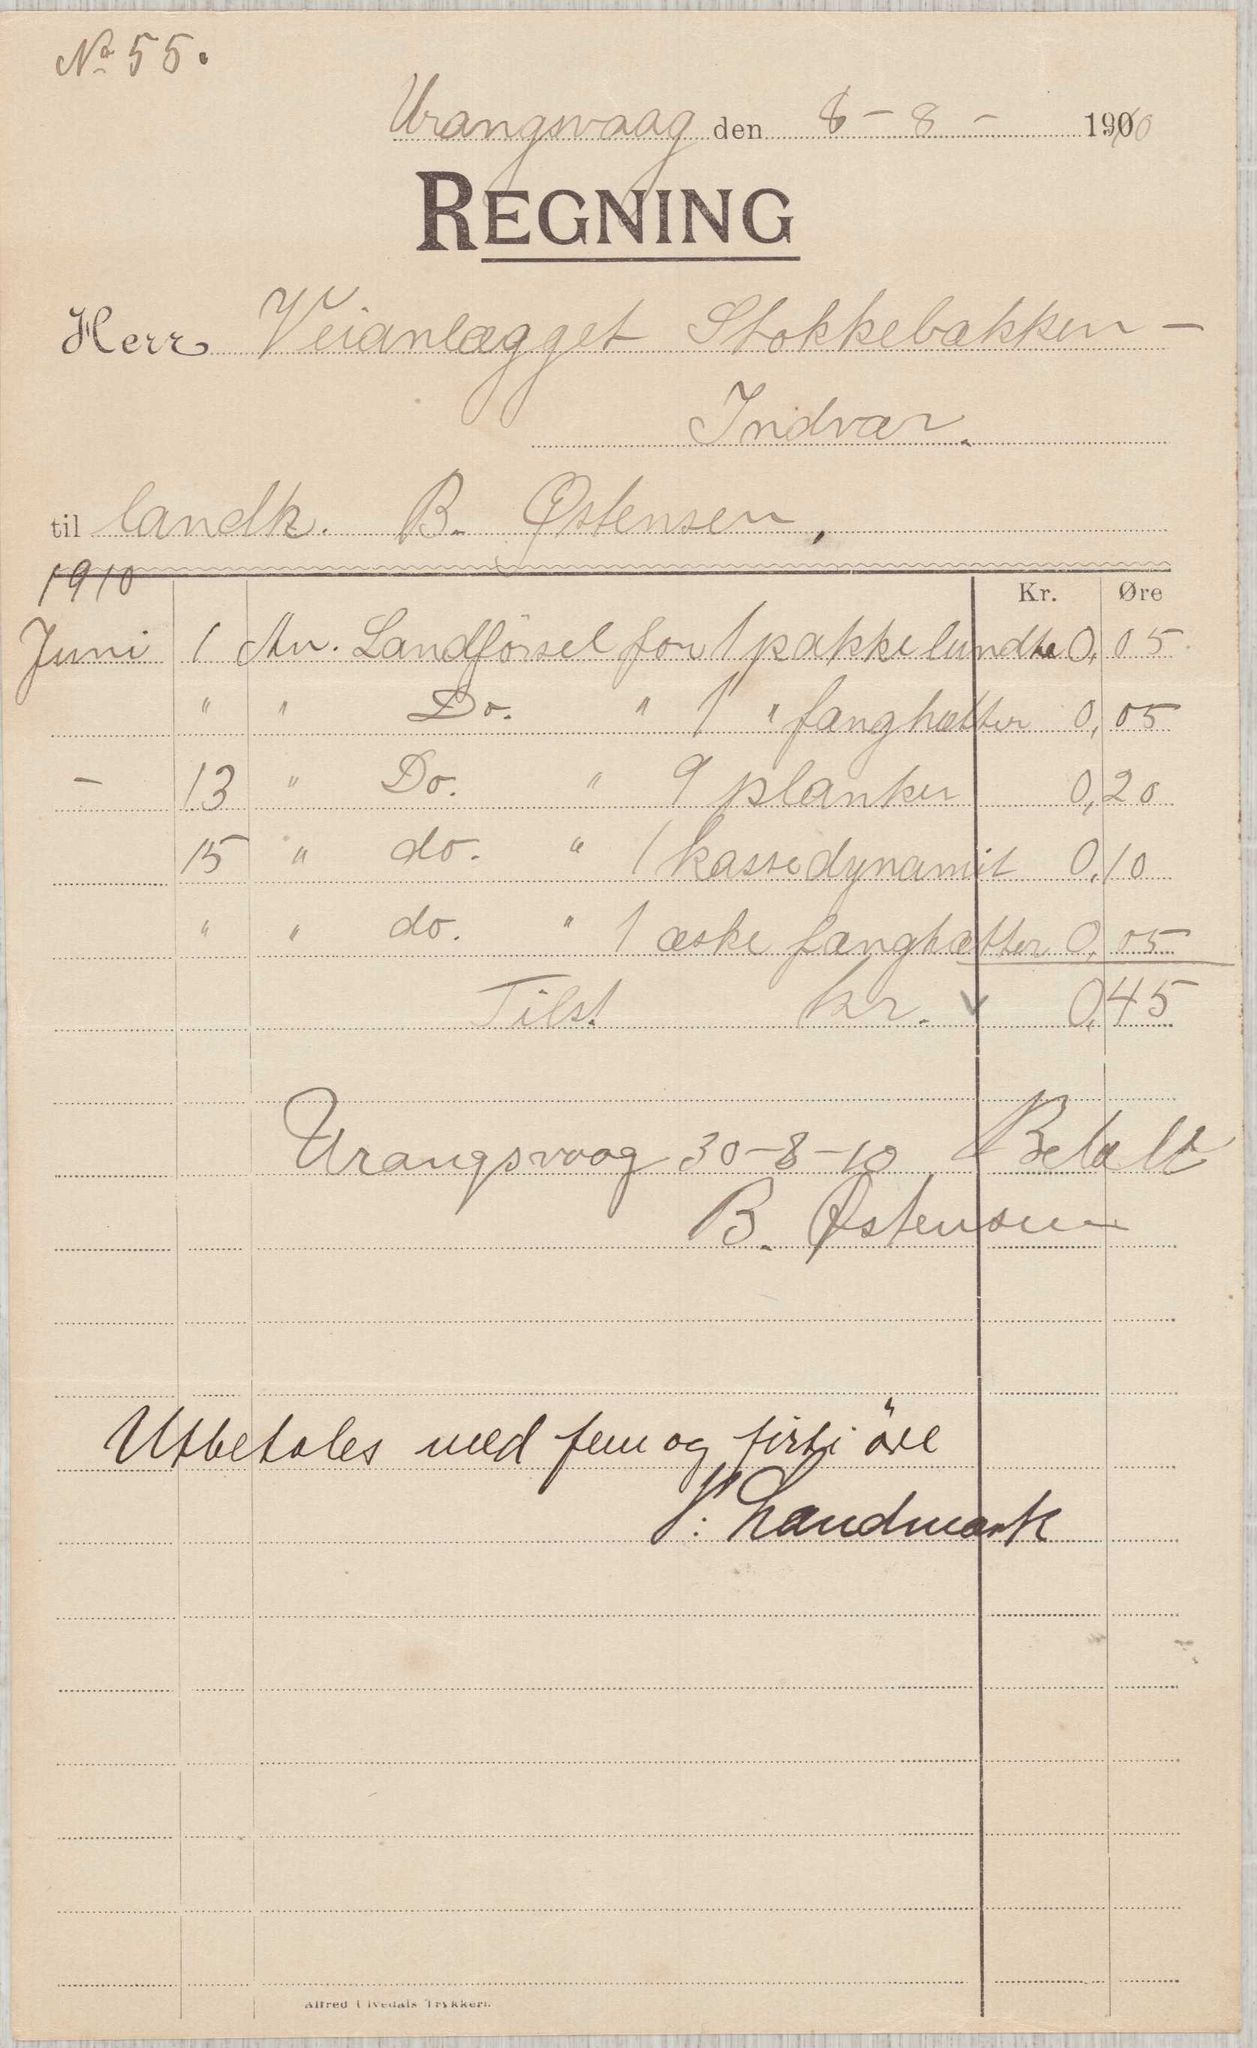 No 55.
Urangsvaag den 8 - 8 - 1910
REGNING
Herr Veianlægget Stokkebækken -
Indvær.
til landh. B. Østensen,
1910
Kr. Øre
Juni 1 An. Landförsel for 1 pakke lundte 0,05
" " Do. " 1 " fanghætter 0,05
- 13 " Do. " 9 planker 0,20
15 " do. " 1 kasse dynamit 0,10
" " do. " 1 æske fænghætter 0,05
Tilst. kr. 0,45
Urangsvaag 30-8-10 Betalt
B. Østensen
Utbetales med fem og firti öre
Landmark
Alfred Ulvedals Trykkeri.